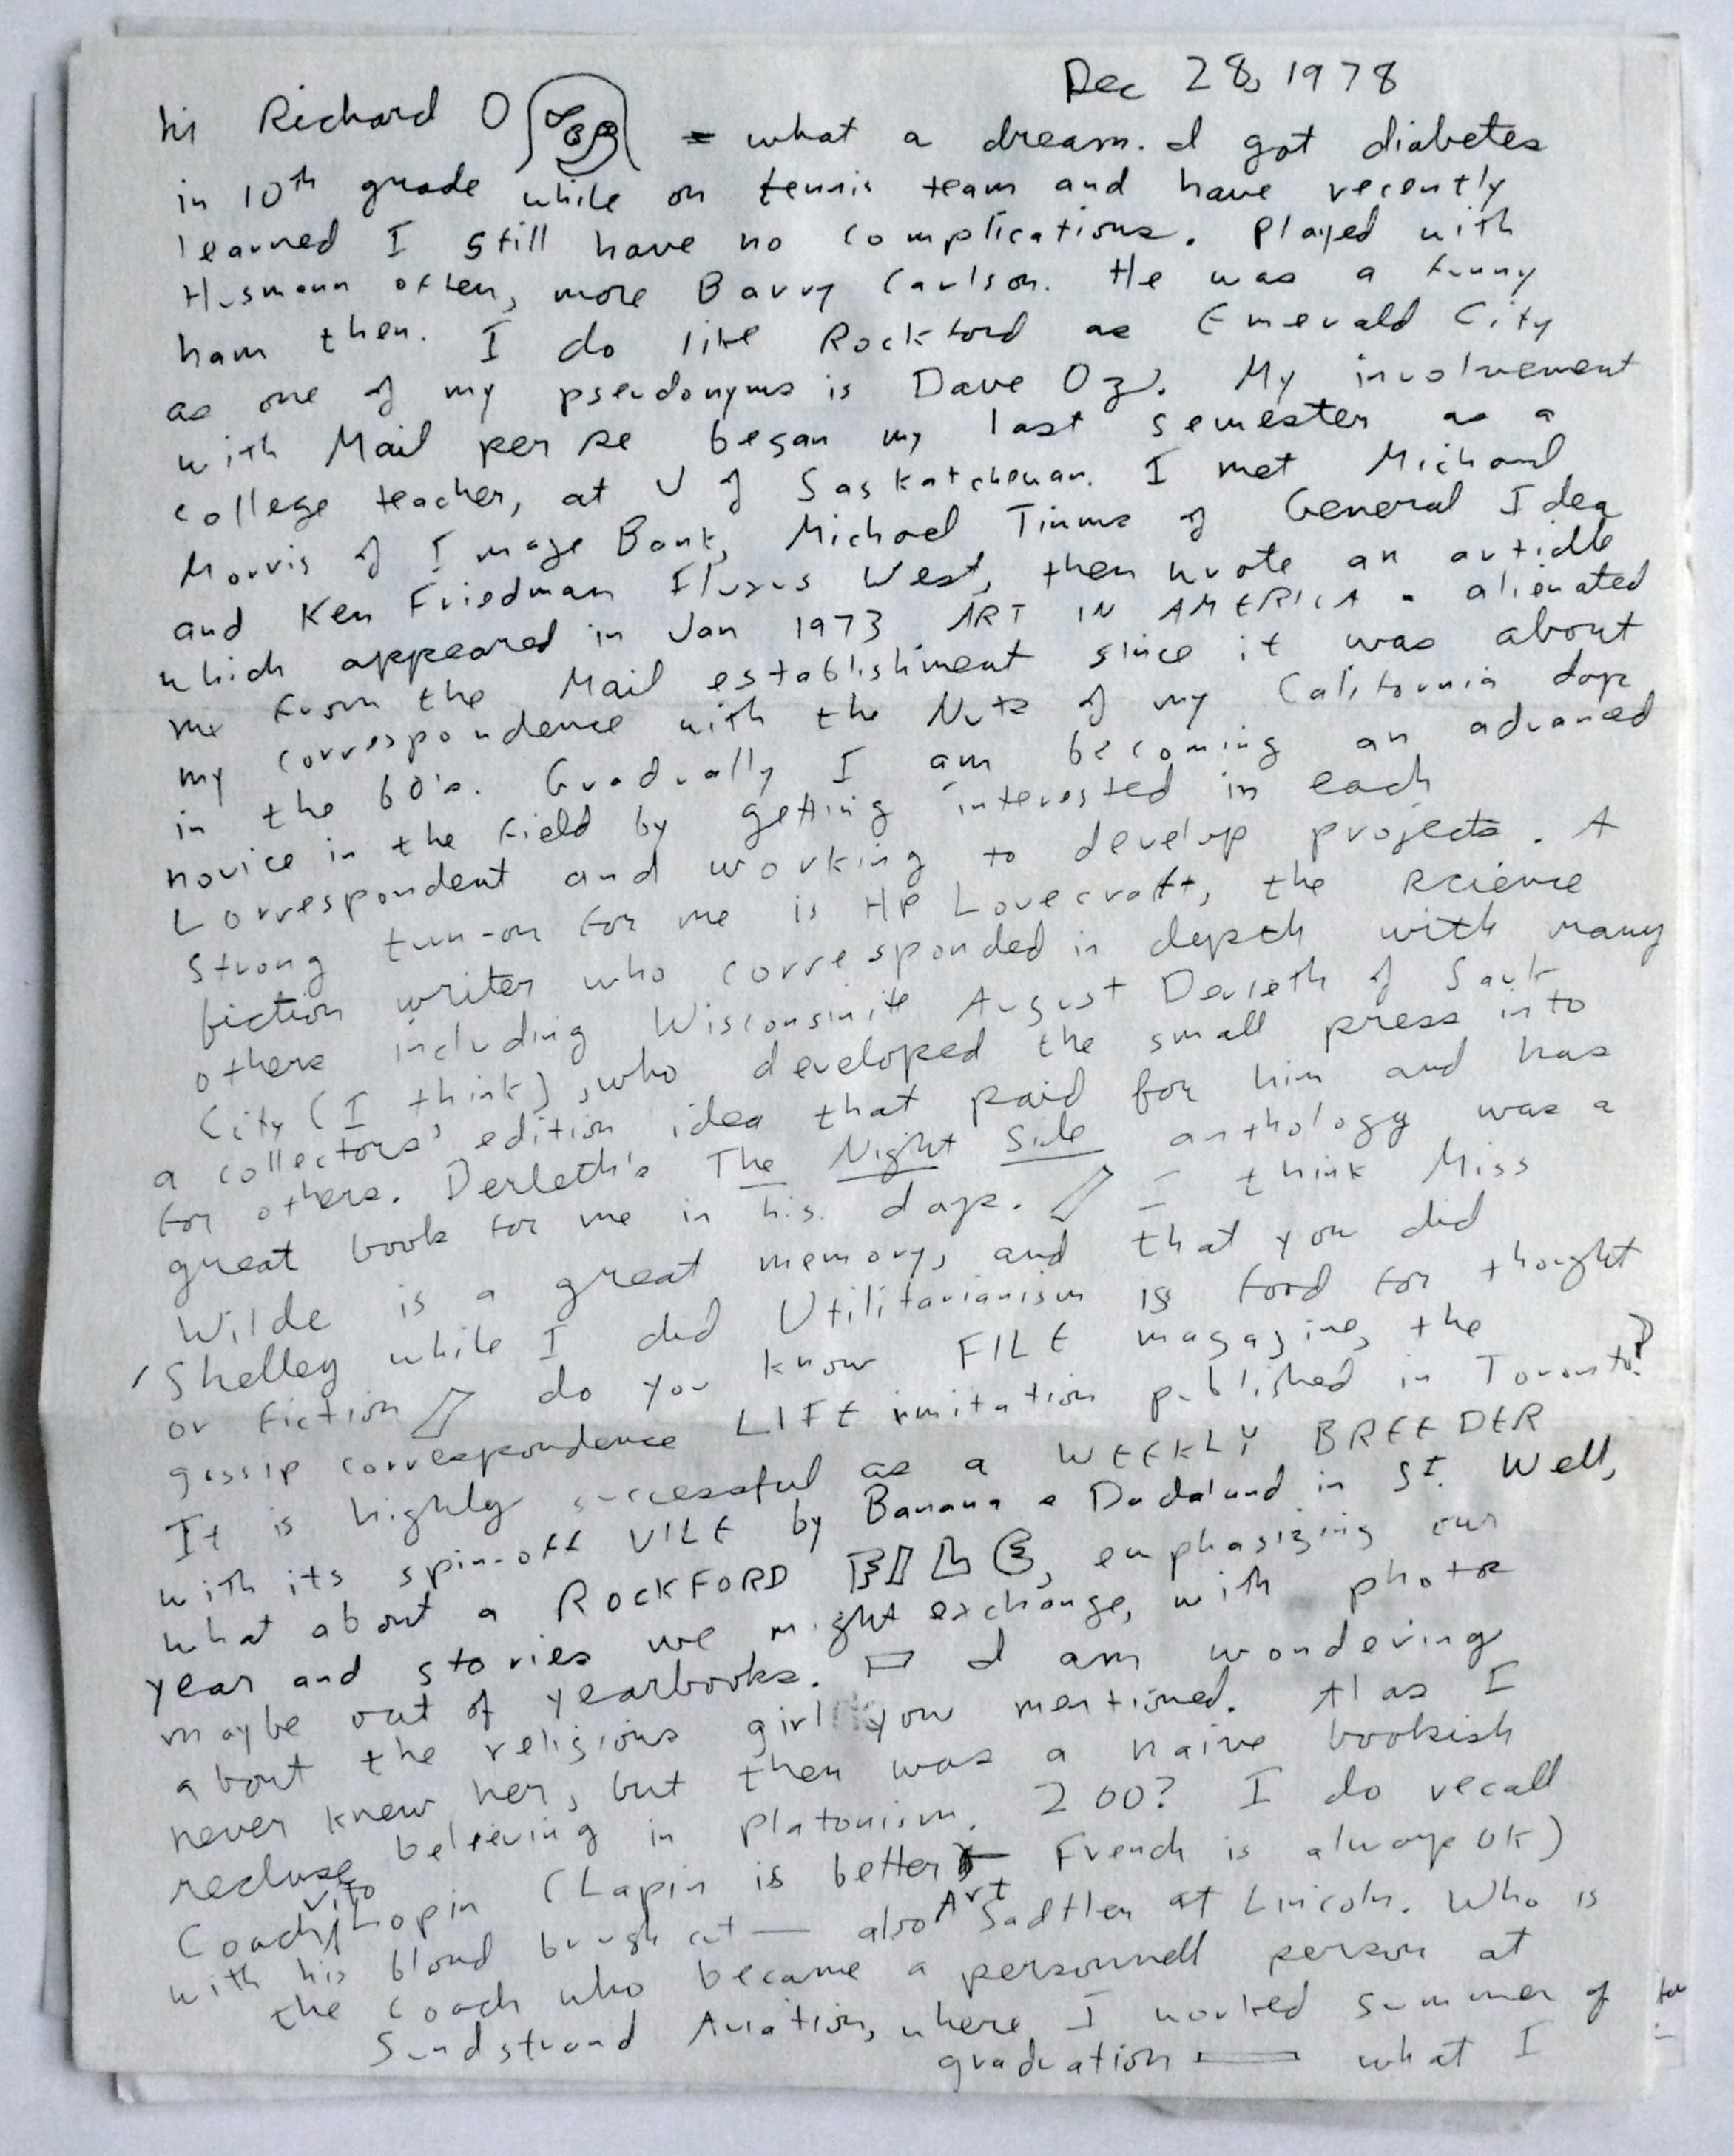 Dec 28, 1978
hi Richard O = what a dream. I got diabetes
in 10th grade while on tennis team and have recently
learned I still have no complications. Played with
Husmann often, more Barry Carlson. He was a funny
ham then. I do like Rockford as Emerald City
as one of my pseudonyms is Dave Oz. My involvement
with Mail per se began my last semester as a
college teacher, at U of Saskatchewan. I met Michael
Morris of Image Bank, Michael Timms of General Idea
and Ken Friedman Fluxus West, then wrote an article
which appeared in Jan 1973 ART IN AMERICA - alienated
me from the Mail establishment since it was about
my correspondence with the Nuts of my California days
in the 60's. Gradually I am becoming an advanced
novice in the field by getting interested in each
correspondent and working to develop projects. A
strong turn-on for me is HP Lovecraft, the science
fiction writer who corresponded in depth with many
others including Wisconsinite August Derleth of Sauk
City (I think), who developed the small press into
a collectors' edition idea that paid for him and has
for others. Derleth's The Night Side anthology was a
great book for me in h.s. days. I think Miss
Wilde is a great memory, and that you did
Shelley while I did Utilitarianism is food for thought
or fiction do you know FILE magazine, the
gossip correspondence LIFE imitation published in Toronto?
It is highly successful as a WEEKLY BREEDER
with its spin-off VILE by Banana & Dadaland in SF. Well,
what about a ROCKFORD BILE, emphasizing our
year and stories we might exchange, with photos
maybe out of yearbooks. I am wondering
about the religious girl you mentioned. Alas I
never knew her, but then was a naive bookish
recluse believing in Platonism. 200? I do recall
Coach Vito Lopin (Lapin is better French is always OK)
with his blond brush cut — also Art Sadtler at Lincoln. Who is
the coach who became a personnell person at
Sundstrand Aviation, where I worked summer of
graduation — what I